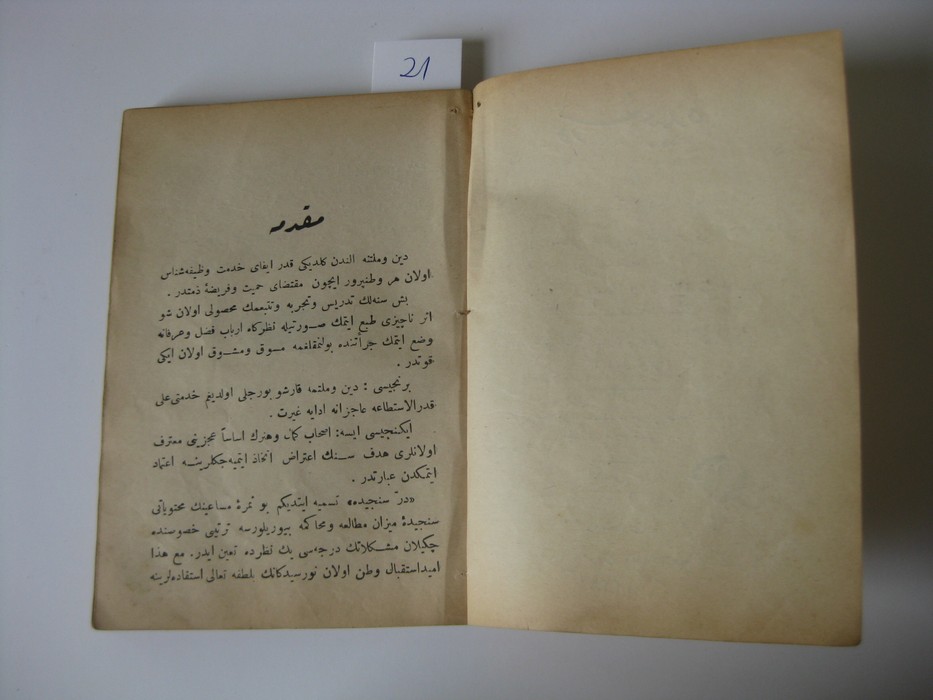 21
مقدمه
دين وملتنه الندن كلديكى قدر ايفاى خدمت وظيفه‌شناس
اولان هر وطنپرور ايچون مقتضاى حميت وفريضهٔ ذمتدر .
بش سنه‌لك تدريس وتجربه وتتبعمك محصولى اولان شو
اثر ناچيزى طبع ايتمك صــورتيله نظركاه ارباب فضل وعرفانه
وضع ايتمك جرأتنده بولنمقلغمه مسوق ومشوق اولان ايكى
قوتدر .
برنجيسى : دين وملتمه قارشو بورجلى اولديغم خدمتى على
قدرالاستطاعه عاجزانه ادايه غيرت .
ايكنجيسى ايسه: اصحاب كمال وهنرك اساساً عجزينى معترف
اولانلرى هدف ســنك اعتراض اتخاذ ايتميه‌جكلرينــه اعتماد
ايتمكدن عبارتدر .
«درّ سنجيده» تسميه ايتديكم بو ثمرهٔ مساعينك محتوياتى
سنجيدهٔ ميزان مطالعه ومحاكمه بيوريلورسه ترتيبى خصوصنده
چكيلان مشــكلاتك درجه‌سى يك نظرده تعين ايدر. مع هذا
اميداستقبال وطن اولان نورسيدكانك بلطفه تعالى استفاده‌لرينه